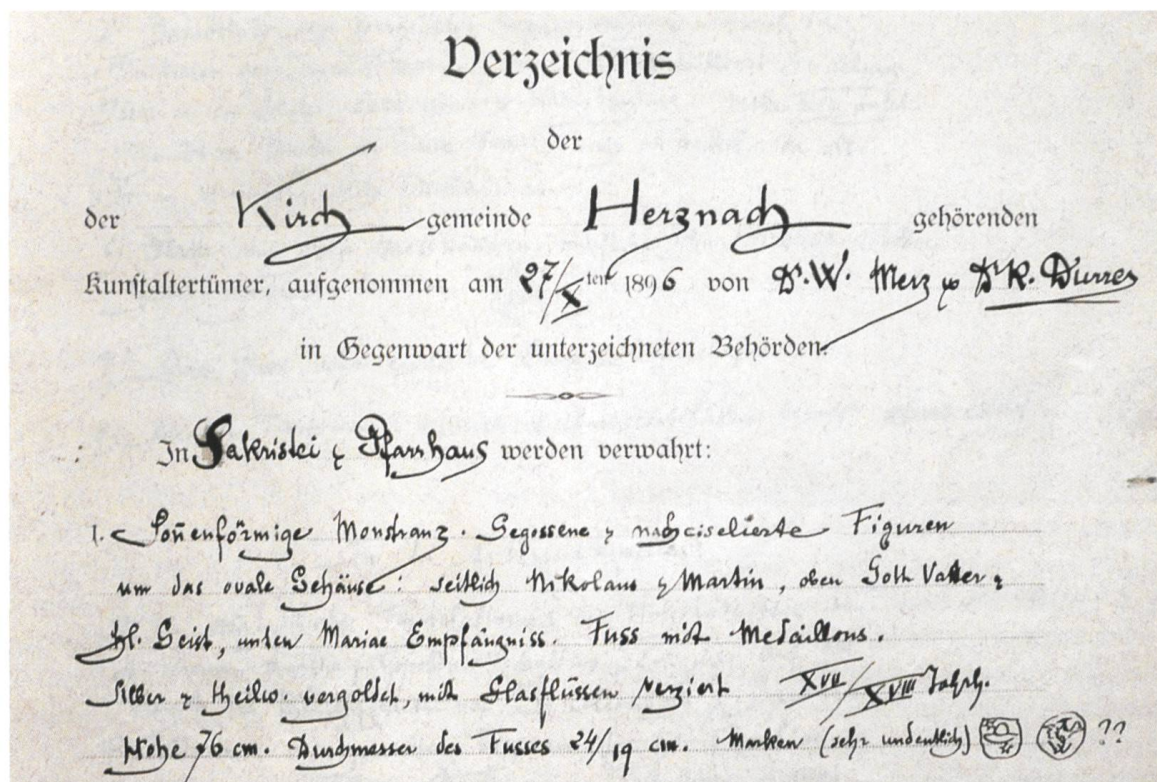 Verzeichnis
der
der Kirchgemeinde Herznach gehörenden
Kunstaltertümer, aufgenommen am 27/X ten 1896 von Dr. W. Merz & Dr. R. Durrer
in Gegenwart der unterzeichneten Behörden.
In Sakristei & Pfarrhaus werden verwahrt:
1. Soñenförmige Monstranz. Gegossene & nachciselierte Figuren
um das ovale Gehäuse: seitlich Nikolaus & Martin, oben Gott Vatter &
hl. Geist, unten Mariae Empfängniss. Fuss mit Medaillons.
Silber & theilw. vergoldet, mit Glasflüssen verziert XVII/XVIII Jahrh.
Höhe 76 cm. Durchmesser des Fusses 24/19 cm. Marken (sehr undeutlich) ??